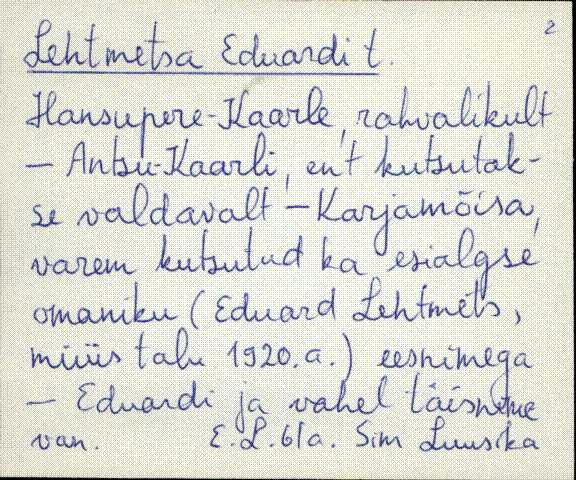 2
Lehtmetsa Eduardi t.
Hansupere-Kaarle, rahvalikult
— Antsu-Kaarli, ent kutsutak-
se valdavalt — Karjamõisa,
varem kutsutud ka esialgse
omaniku (Eduard Lehtmets,
müüs talu 1920. a.) eesnimega
— Eduardi ja vahel täisnime
van. E. L. 61 a. Sim Luusika